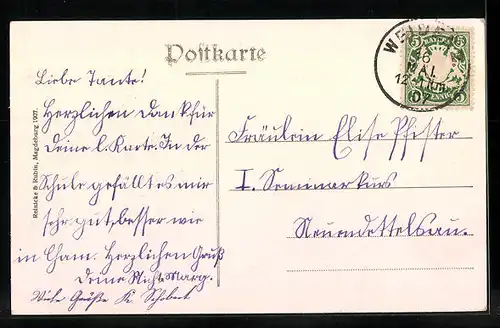 Postkarte
Liebe Tante!
Herzlichen Dank für
Deine l. Karte. In der
Schule gefällt es mir
sehr gut, besser wie
in Cham. Herzlichen Gruß
Deine Nichte Marg.
Viele Grüße K. Schubert
Reinicke & Rubin, Magdeburg 1907.
Fräulein Elise Pfister
I. Seminarkurs
Neuendettelsau.
5 BAYERN 5
WEI
MAI
12